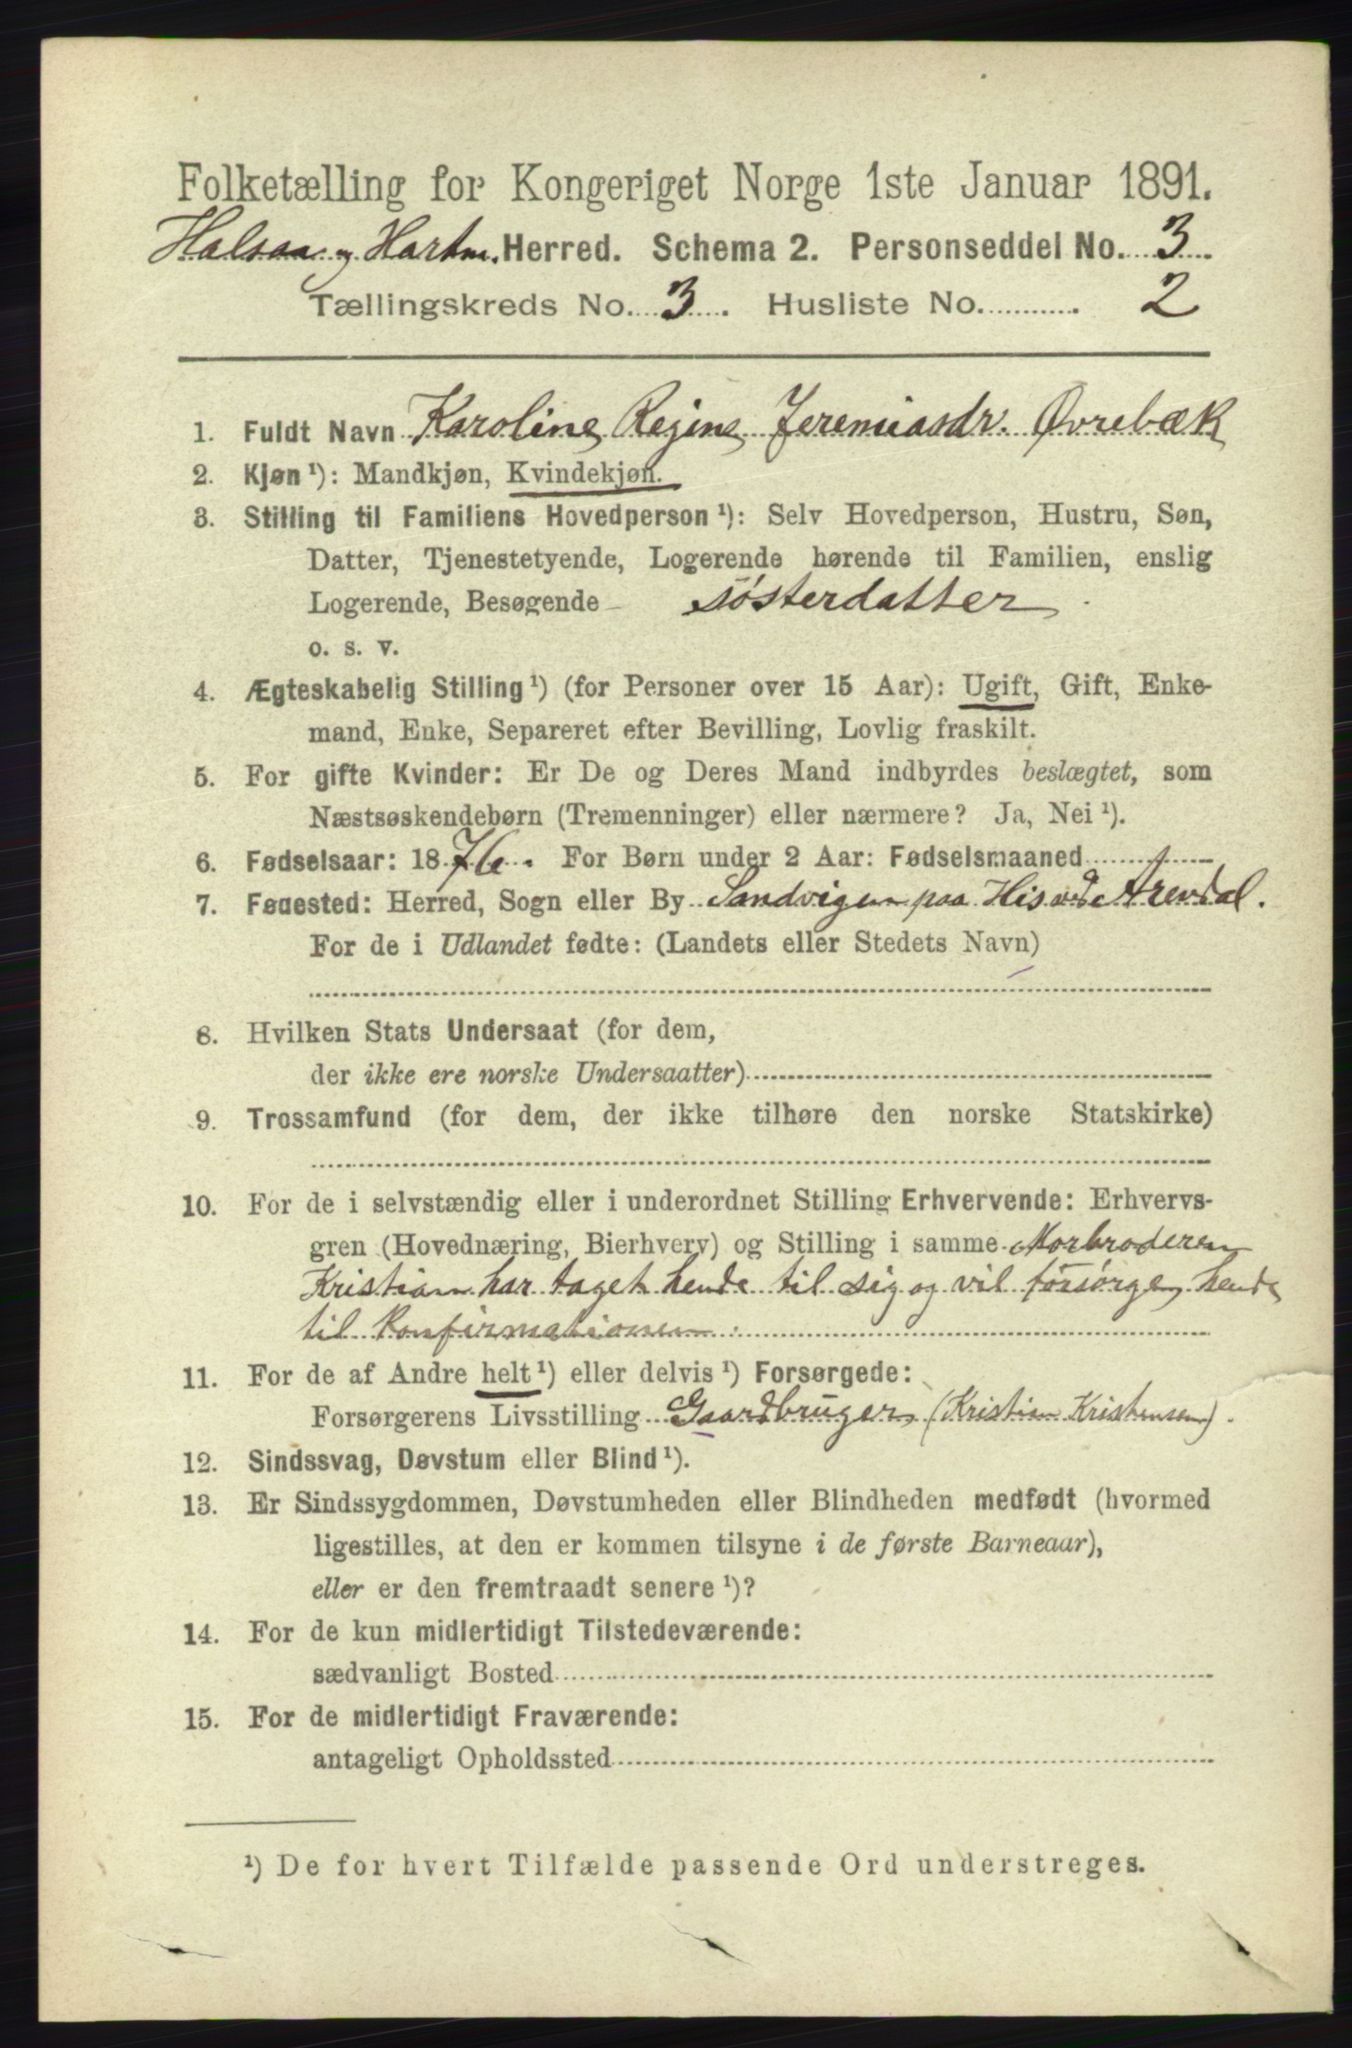 Folketælling for Kongeriget Norge 1ste Januar 1891.
Halsaa og Hartm. Herred. Schema 2. Personseddel No. 3
Tællingskreds No. 3. Husliste No. 2
1. Fuldt Navn Karoline Regine Jeremiasdr. Øvrebæk
2. Kjøn ¹): Mandkjøn, Kvindekjøn.
3. Stilling til Familiens Hovedperson ¹): Selv Hovedperson, Hustru, Søn,
Datter, Tjenestetyende, Logerende hørende til Familien, enslig
Logerende, Besøgende søsterdatter
o. s. v.
4. Ægteskabelig Stilling ¹) (for Personer over 15 Aar): Ugift, Gift, Enke-
mand, Enke, Separeret efter Bevilling, Lovlig fraskilt.
5. For gifte Kvinder: Er De og Deres Mand indbyrdes beslægtet, som
Næstsøskendebørn (Tremenninger) eller nærmere? Ja, Nei ¹).
6. Fødselsaar: 1876. For Børn under 2 Aar: Fødselsmaaned
7. Fødested: Herred, Sogn eller By Sandvigen paa His ved Arendal.
For de i Udlandet fødte: (Landets eller Stedets Navn)
8. Hvilken Stats Undersaat (for dem,
der ikke ere norske Undersaatter)
9. Trossamfund (for dem, der ikke tilhøre den norske Statskirke)
10. For de i selvstændig eller i underordnet Stilling Erhvervende: Erhvervs-
gren (Hovednæring, Bierhverv) og Stilling i samme Morbroderen
Kristian har taget hende til sig og vil forsørge hende
til Konfirmationen.
11. For de af Andre helt ¹) eller delvis ¹) Forsørgede:
Forsørgerens Livsstilling Gaardbruger (Kristian Kristensen).
12. Sindssvag, Døvstum eller Blind ¹).
13. Er Sindssygdommen, Døvstumheden eller Blindheden medfødt (hvormed
ligestilles, at den er kommen tilsyne i de første Barneaar),
eller er den fremtraadt senere ¹)?
14. For de kun midlertidigt Tilstedeværende:
sædvanligt Bosted
15. For de midlertidigt Fraværende:
antageligt Opholdssted
¹) De for hvert Tilfælde passende Ord understreges.